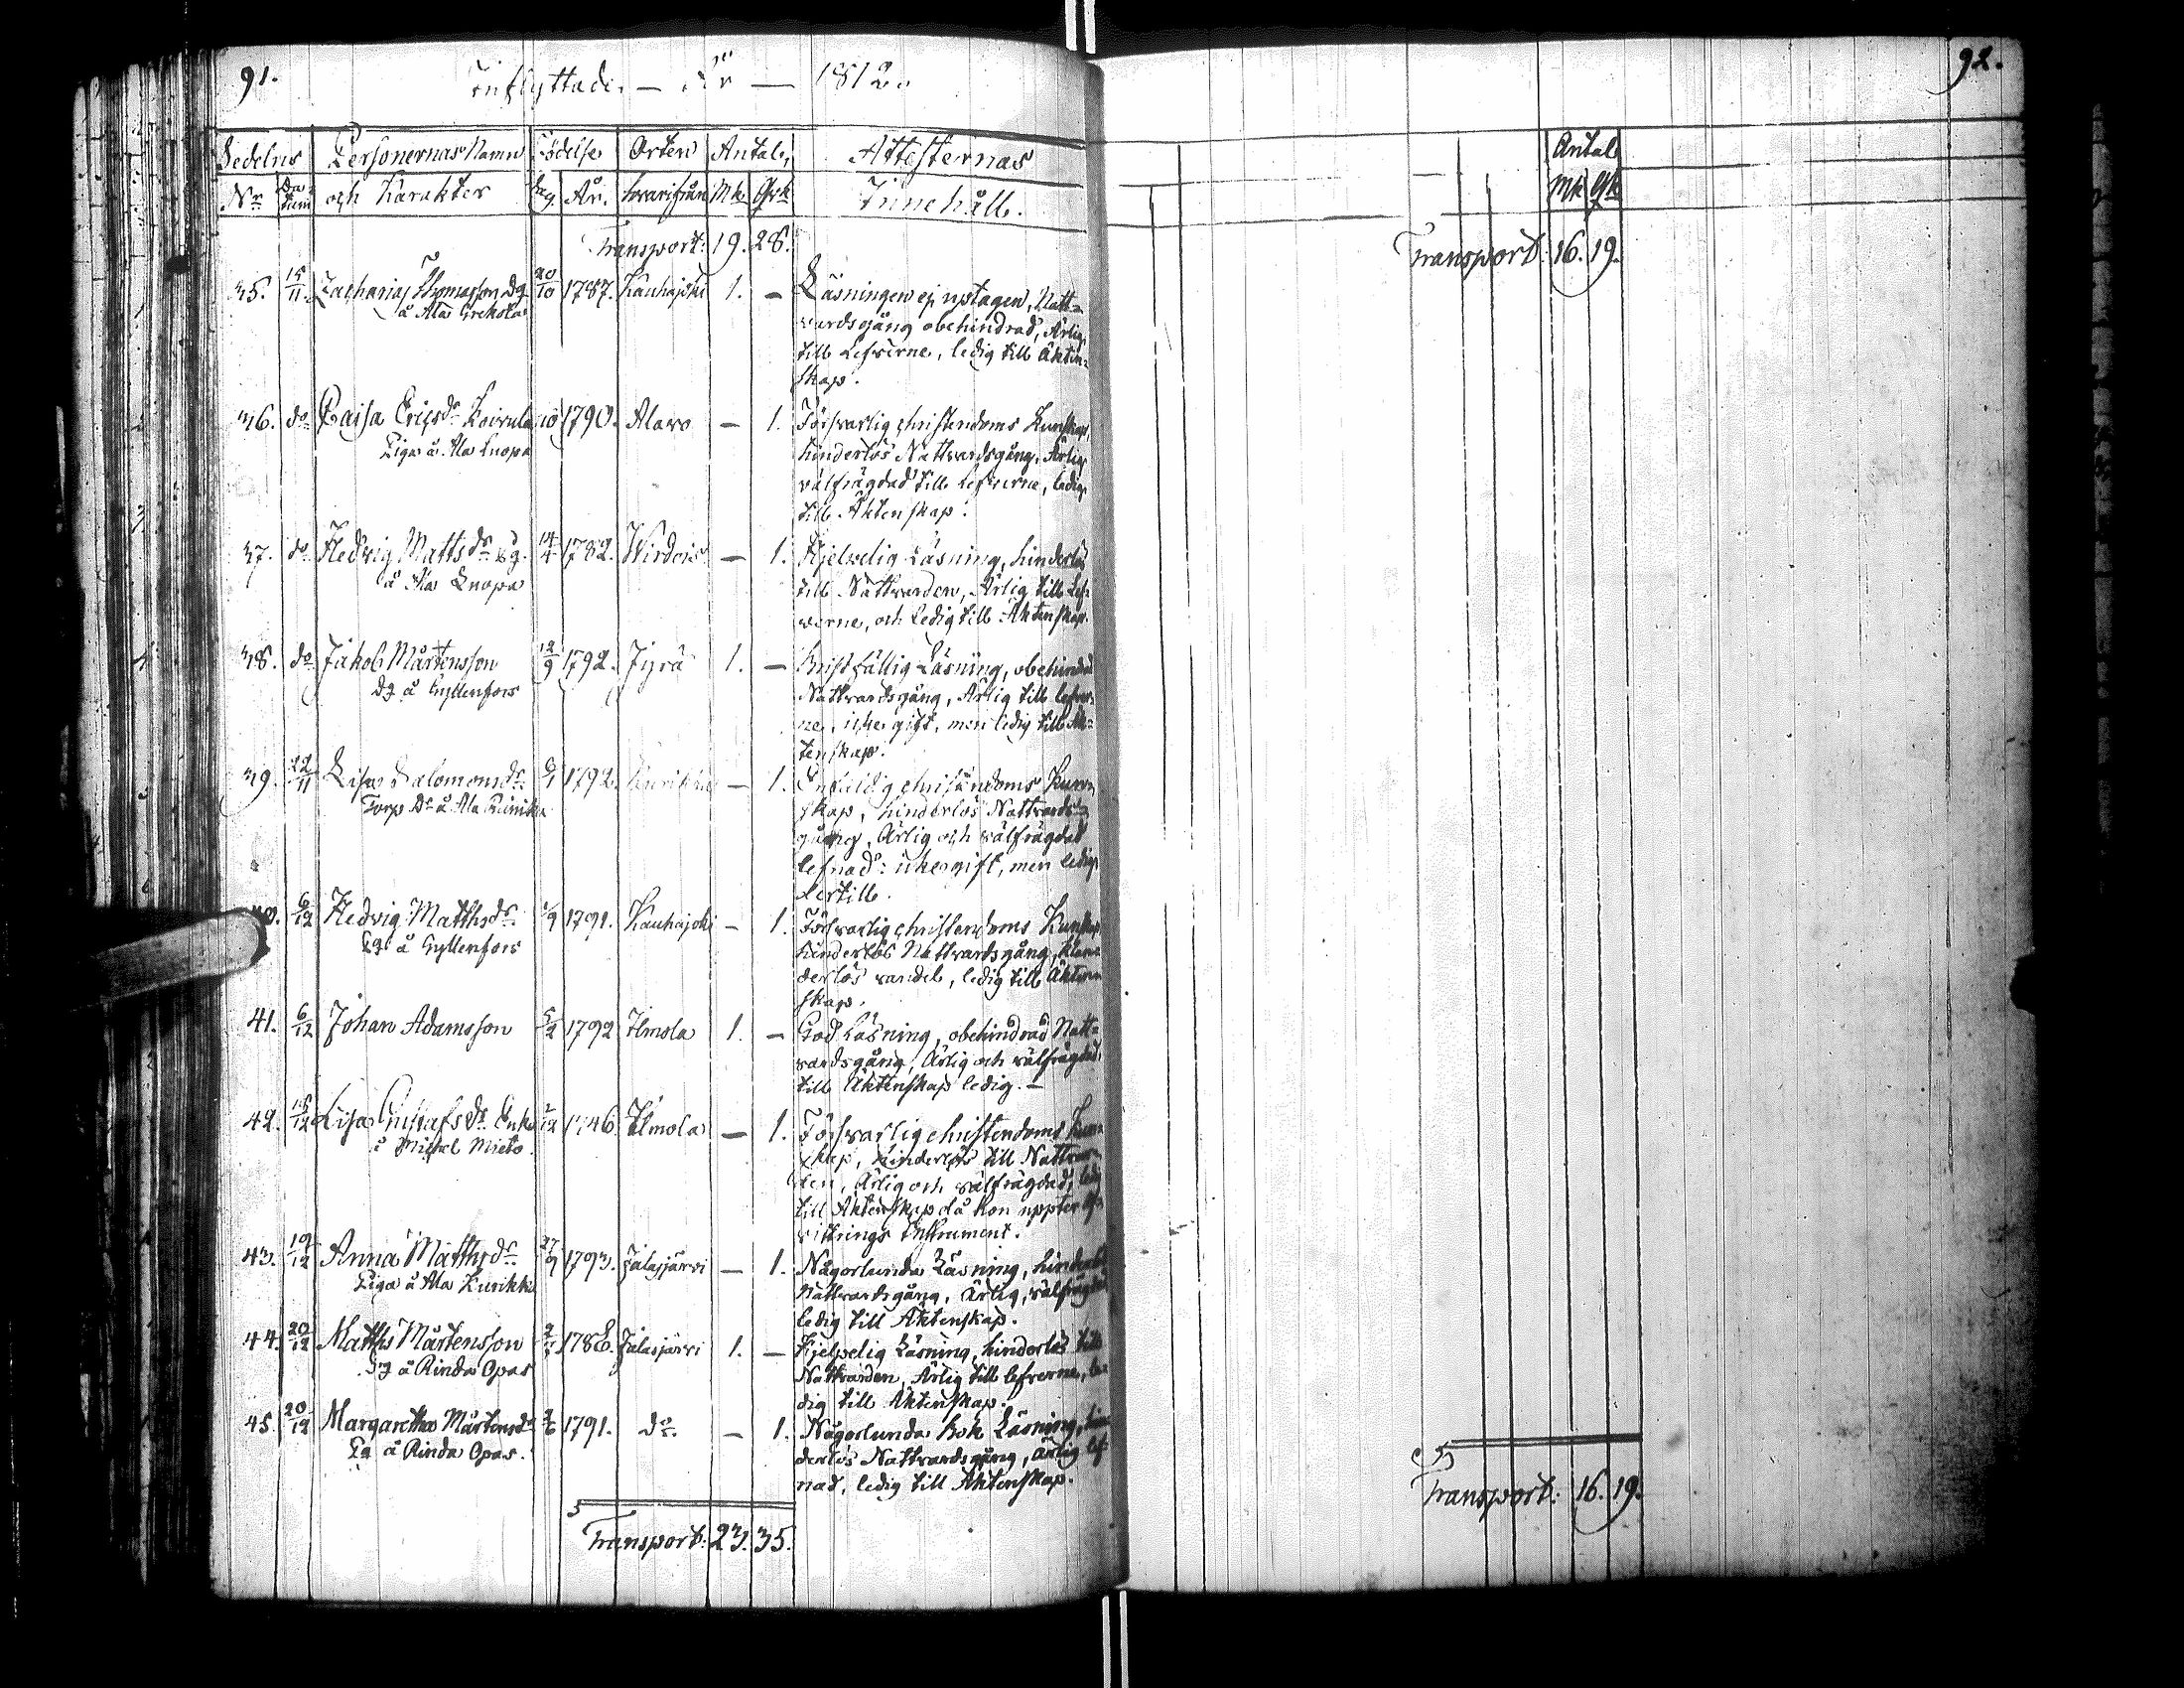 91.
Inflyttade — År — 1812.
Sedelns Personernas Namn Födelse Orten Antal, Attesternas
No Datum och Karakter Dag. År. hvarifrån Mk Qvk Innehåll.
Transport: 19. 28.
35. 15/11. Zacharias Thomasson Dg 20/10 1787. Kauhajoki 1. — Läsningen ej uptagen, Natt-
å Ala
vardsgång obehindrad, Ärlig
till Lefverne, ledig till Äkten-
skap.
36. do Caisa Ericsdr Koivula 10 1790. Alavo — 1. Försvarlig christendoms Kunskap,
Piga å Ala Knopa
hinderlös Nattvardsgång, Ärlig
välfrägdad till Lefverne, ledig
till Äktenskap.
37. do Hedvig Mattsdr Pg. 14/4 1782. Wirdois — 1. Hjelpelig Läsning, hinderlös
å Ala Knopa
till Nattvarden, Ärlig till Lef-
verne, och Ledig till Äktenskap.
38. do Jakob Mårtensson 12/9 1792. Jyrä 1. — Bristfällig Läsning, obehindrad
Dg å Gyllenfors
Nattvardsgång, Ärlig till lefver-
ne, icke gift, men ledig till Äk-
tenskap.
39. 22/11 Lisa Salomonsdr 1792. — 1. christendoms Kunn-
Torp Dr å Ala Kurikka
skap, hinderlös Nattvards-
gång, Ärlig och välfrägdad
lefnad: icke gift, men ledig
dertill.
40. 6/12 Hedvig Mattsdr 1791. Kauhajoki — 1. Försvarlig christendoms Kunskap
Pg å Gyllenfors
hinderlös Nattvardsgång, klan-
derlös vandel, ledig till Äkten-
skap.
41. 6/12 Johan Adamsson 5/2 1792 Ilmola 1. — God Läsning, obehindrad Natt-
vardsgång, Ärlig och välfrägdad,
till Äktenskap ledig. —
42. 15/12 Lisa Gustafsdr Enka 1746 Ilmola — 1. Försvarlig christendoms Kun-
å Michel Mieto
skap, hinderlös till Nattvar-
den, Ärlig och välfrägdad, ledig
till Äktenskap då hon uppter af-
vittrings Instrument.
43. 19/12 Anna Mattsdr 27/9 1793. Jalasjärvi — 1. Någorlunda Läsning, hinderlös
Piga å Ala Kurikka
Nattvardsgång, Ärlig, välfrägdad
ledig till Äktenskap.
44. 20/12 Matts Mårtensson 1786. Jalasjärvi 1. — Hjelpelig Läsning, hinderlös till
Dg å Rinda Opas
Nattvarden, Ärlig till lefverne, le-
dig till Äktenskap.
45. 20/12 Margaretha Mårtensdr 1791. do — 1. Någorlunda Bok Läsning, hin-
Pg å Rinda Opas.
derlös Nattvardsgång, ärlig lef-
nad, ledig till Äktenskap.
Transport: 23. 35.
92.
Antal
Mk Qk
Transport: 16. 19.
Transport: 16. 19.